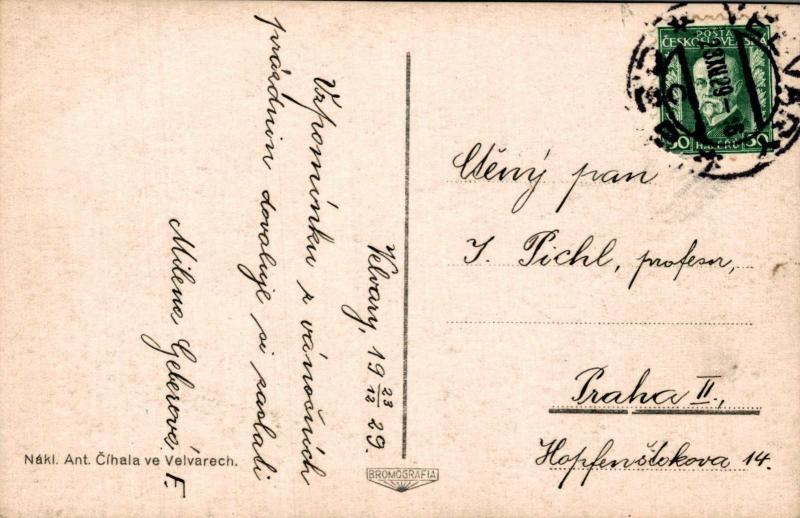 Velvary, 19 23/12 29.
Vzpomínku z vánočních
prázdnin dovoluje si zaslati
Milena Geberová.
F.
Nákl. Ant. Číhala ve Velvarech.
BROMOGRAFIA
POŠTA
ČESKOSLOVENSKÁ
50 HALÉŘŮ 50
VELVARY
23.XII.29
Ctěný pan
J. Pichl, profesor,
Praha II.,
Hopfenštokova 14.